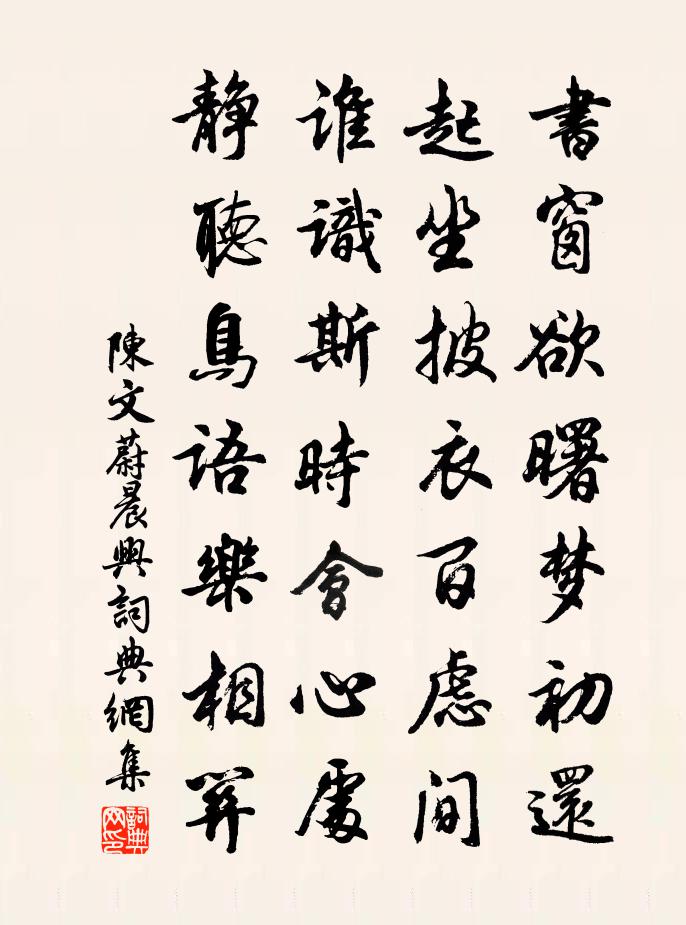 書窗欲曙梦初還
起坐披衣百慮間
誰識斯時會心處
静聽鳥語樂相關
陳文蔚晨興詞典網集
詞典
网印